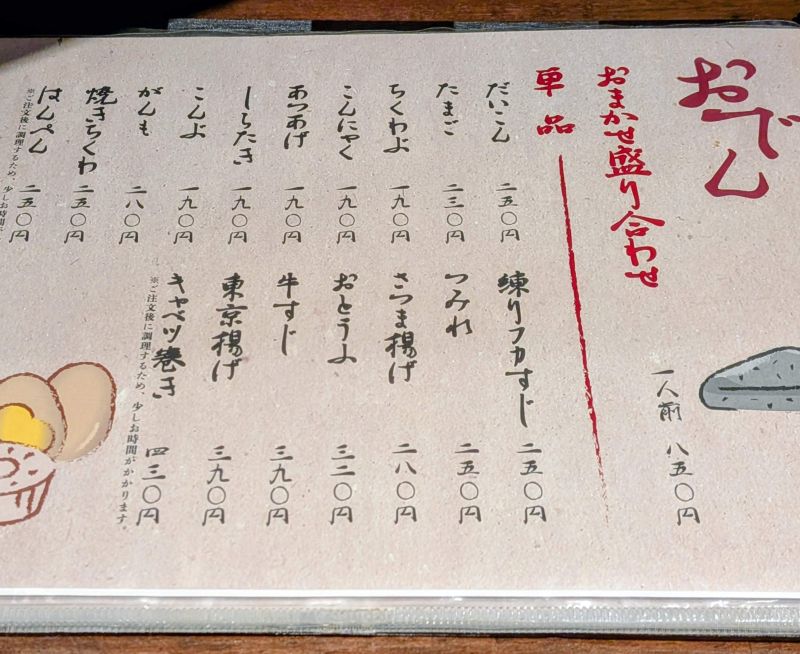 おでん
おまかせ盛り合わせ 一人前 八五〇円
単品
だいこん 二五〇円
たまご 二三〇円
ちくわぶ 一九〇円
こんにゃく 一九〇円
あつあげ 一九〇円
しらたき 一九〇円
こんぶ 一九〇円
がんも 二八〇円
焼きちくわ 二五〇円
はんぺん 二五〇円
※ご注文後に調理するため、少しお時間
練りフカすじ 二五〇円
つみれ 二五〇円
さつま揚げ 二八〇円
おとうふ 三二〇円
牛すじ 三九〇円
東京揚げ 三九〇円
キャベツ巻き 四三〇円
※ご注文後に調理するため、少しお時間がかかります。